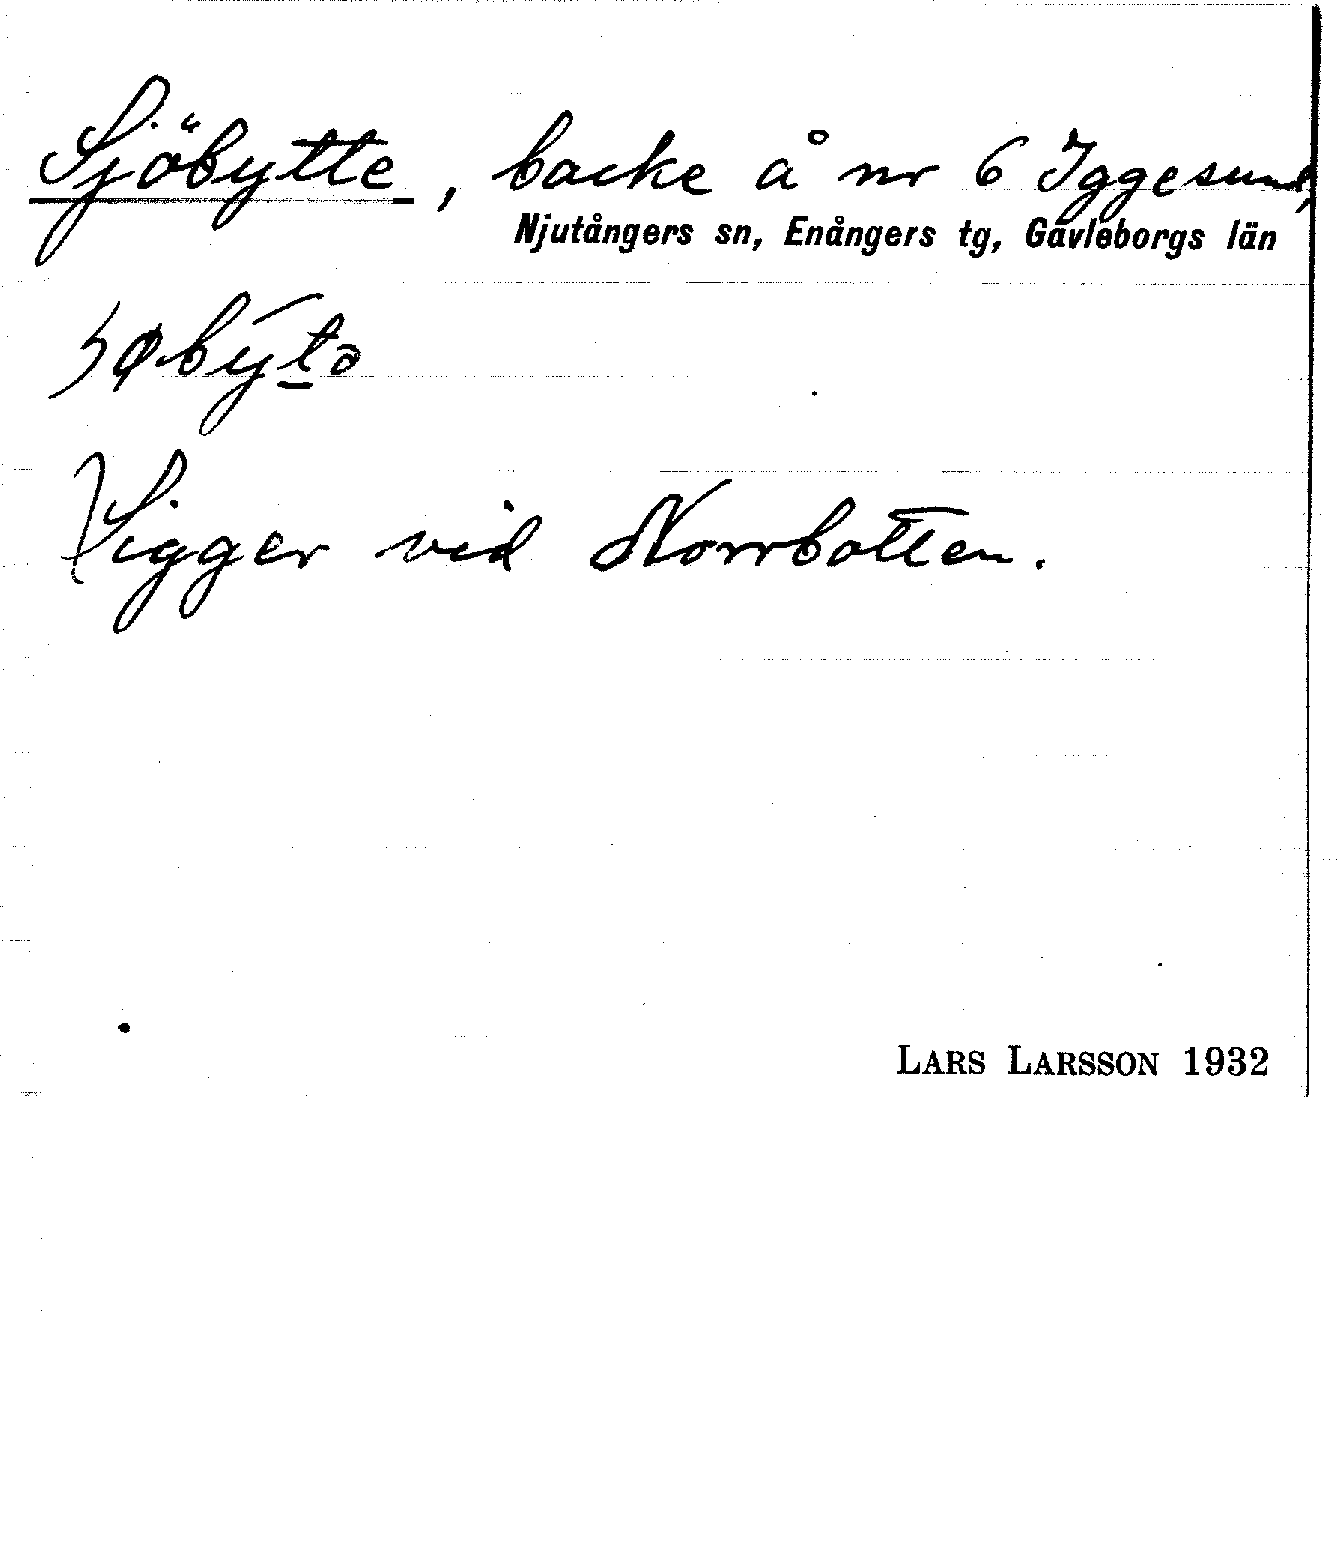 Sjöbytte, backe å nr 6 Iggesund,
Njutångers sn, Enångers tg, Gävleborgs län
Ligger vid Norrbotten.
LARS LARSSON 1932